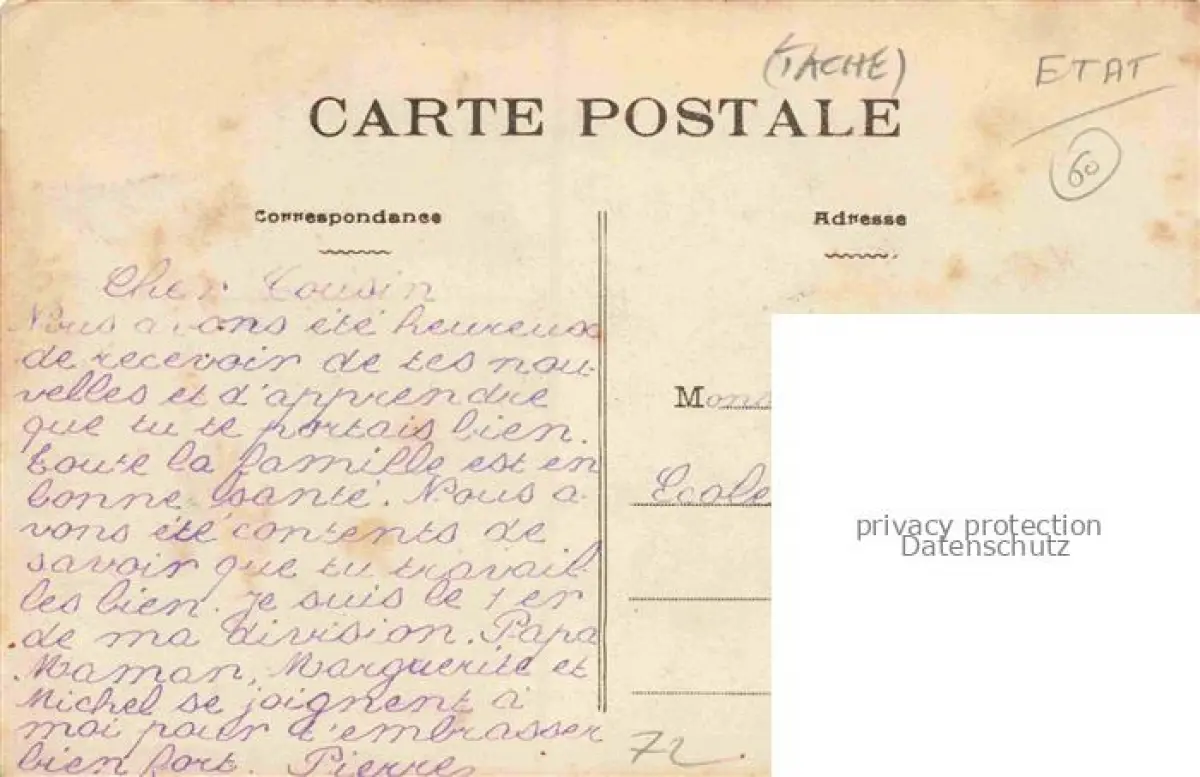 (TACHE)
ETAT
60
CARTE POSTALE
Correspondance
Adresse
Cher Cousin
Nous avons été heureux
de recevoir de tes nou-
velles et d'apprendre
que tu te portais bien.
toute la famille est en
bonne santé. Nous a-
vons été contents de
savoir que tu travail-
les bien. Je suis le 1er
de ma division. Papa
Maman, Marguerite et
Michel se joignent à
moi pour t'embrasser
bien fort. Pierre
Mons
Ecole
privacy protection
Datenschutz
72